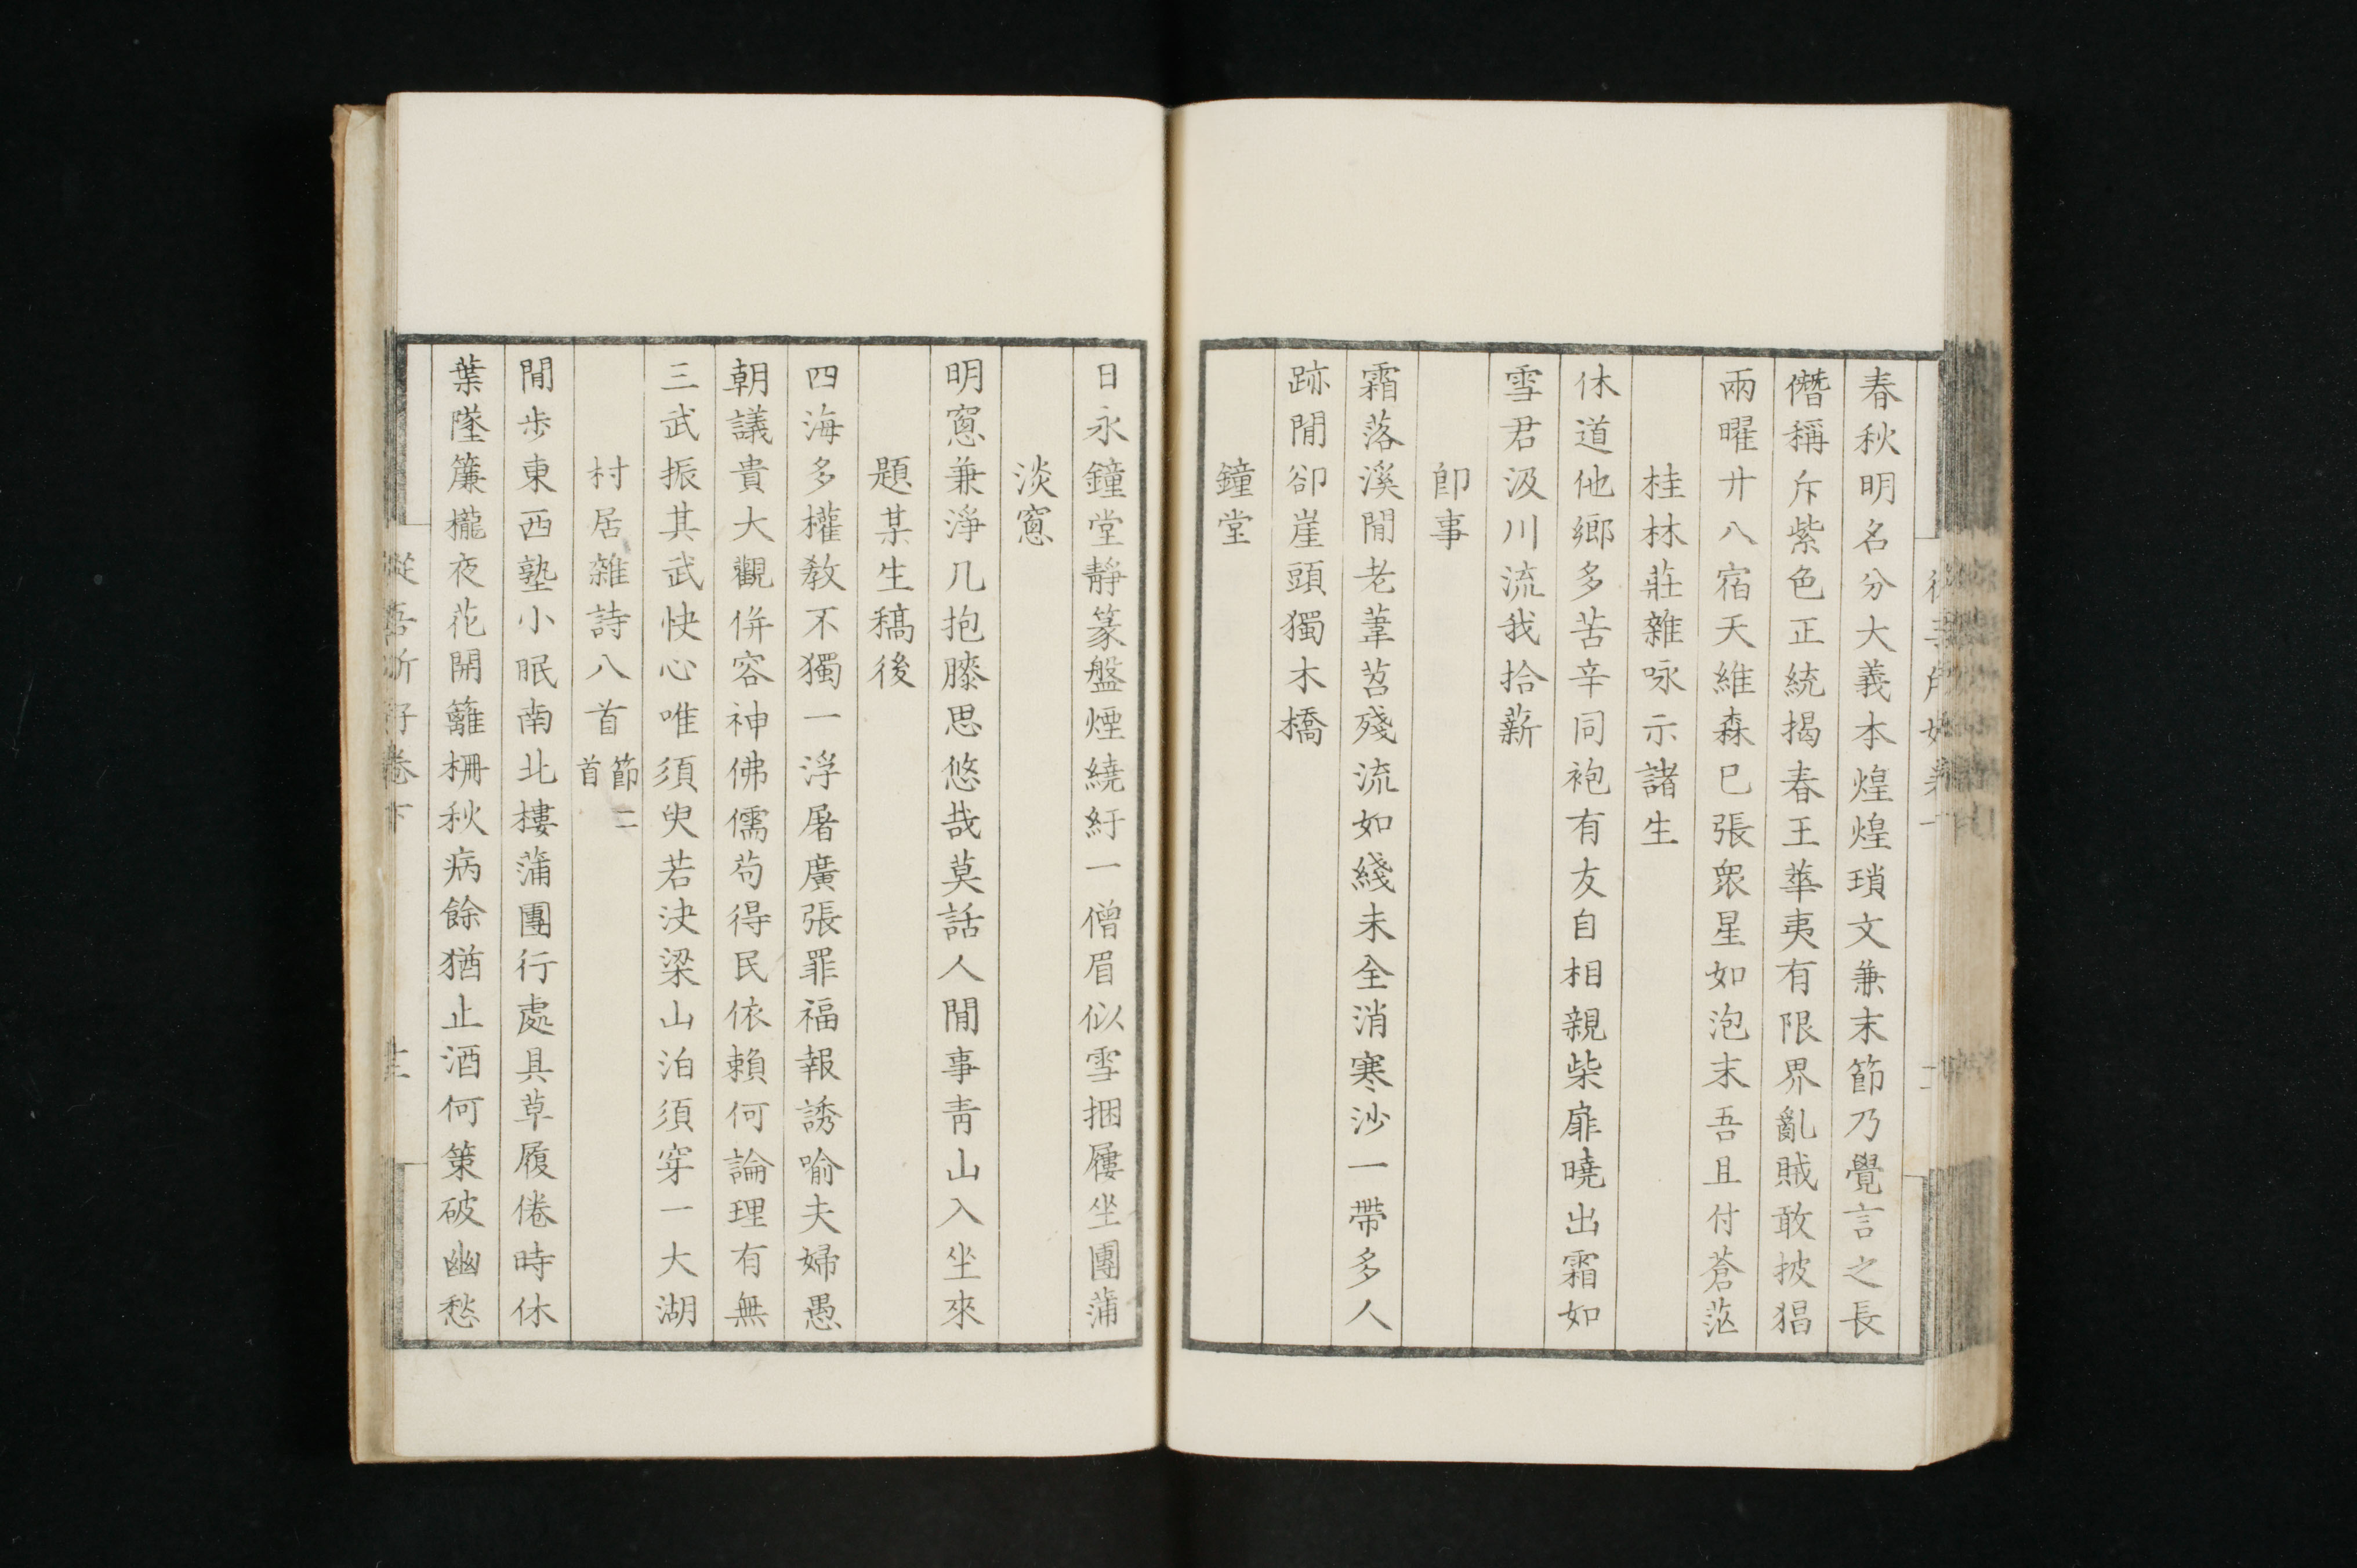 春秋明名分大義本煌煌瑣文兼末節乃覺言之長
僭稱斥紫色正統揭春王華夷有限界亂賊敢披猖
兩曜廿八宿天維森巳張衆星如泡末吾且付蒼茫
桂林莊雜咏示諸生
休道他鄉多苦辛同袍有友自相親柴扉曉出霜如
雪君汲川流我拾薪
卽事
霜落溪閒老葦苕殘流如綫未全消寒沙一帶多人
跡閒卻崖頭獨木橋
鐘堂
日永鐘堂靜篆盤煙繞紆一僧眉似雪捆屨坐團蒲
淡窻
明窻兼淨几抱膝思悠哉莫話人閒事靑山入坐來
題某生稿後
四海多權敎不獨一浮屠廣張罪福報誘喻夫婦愚
朝議貴大觀倂容神佛儒苟得民依賴何論理有無
三武振其武快心唯須臾若決梁山泊須穿一大湖
村居雜詩八首節二首
閒步東西塾小眠南北樓蒲團行處具草履倦時休
葉墜簾櫳夜花開籬柵秋病餘猶止酒何策破幽愁
從吾所好卷下